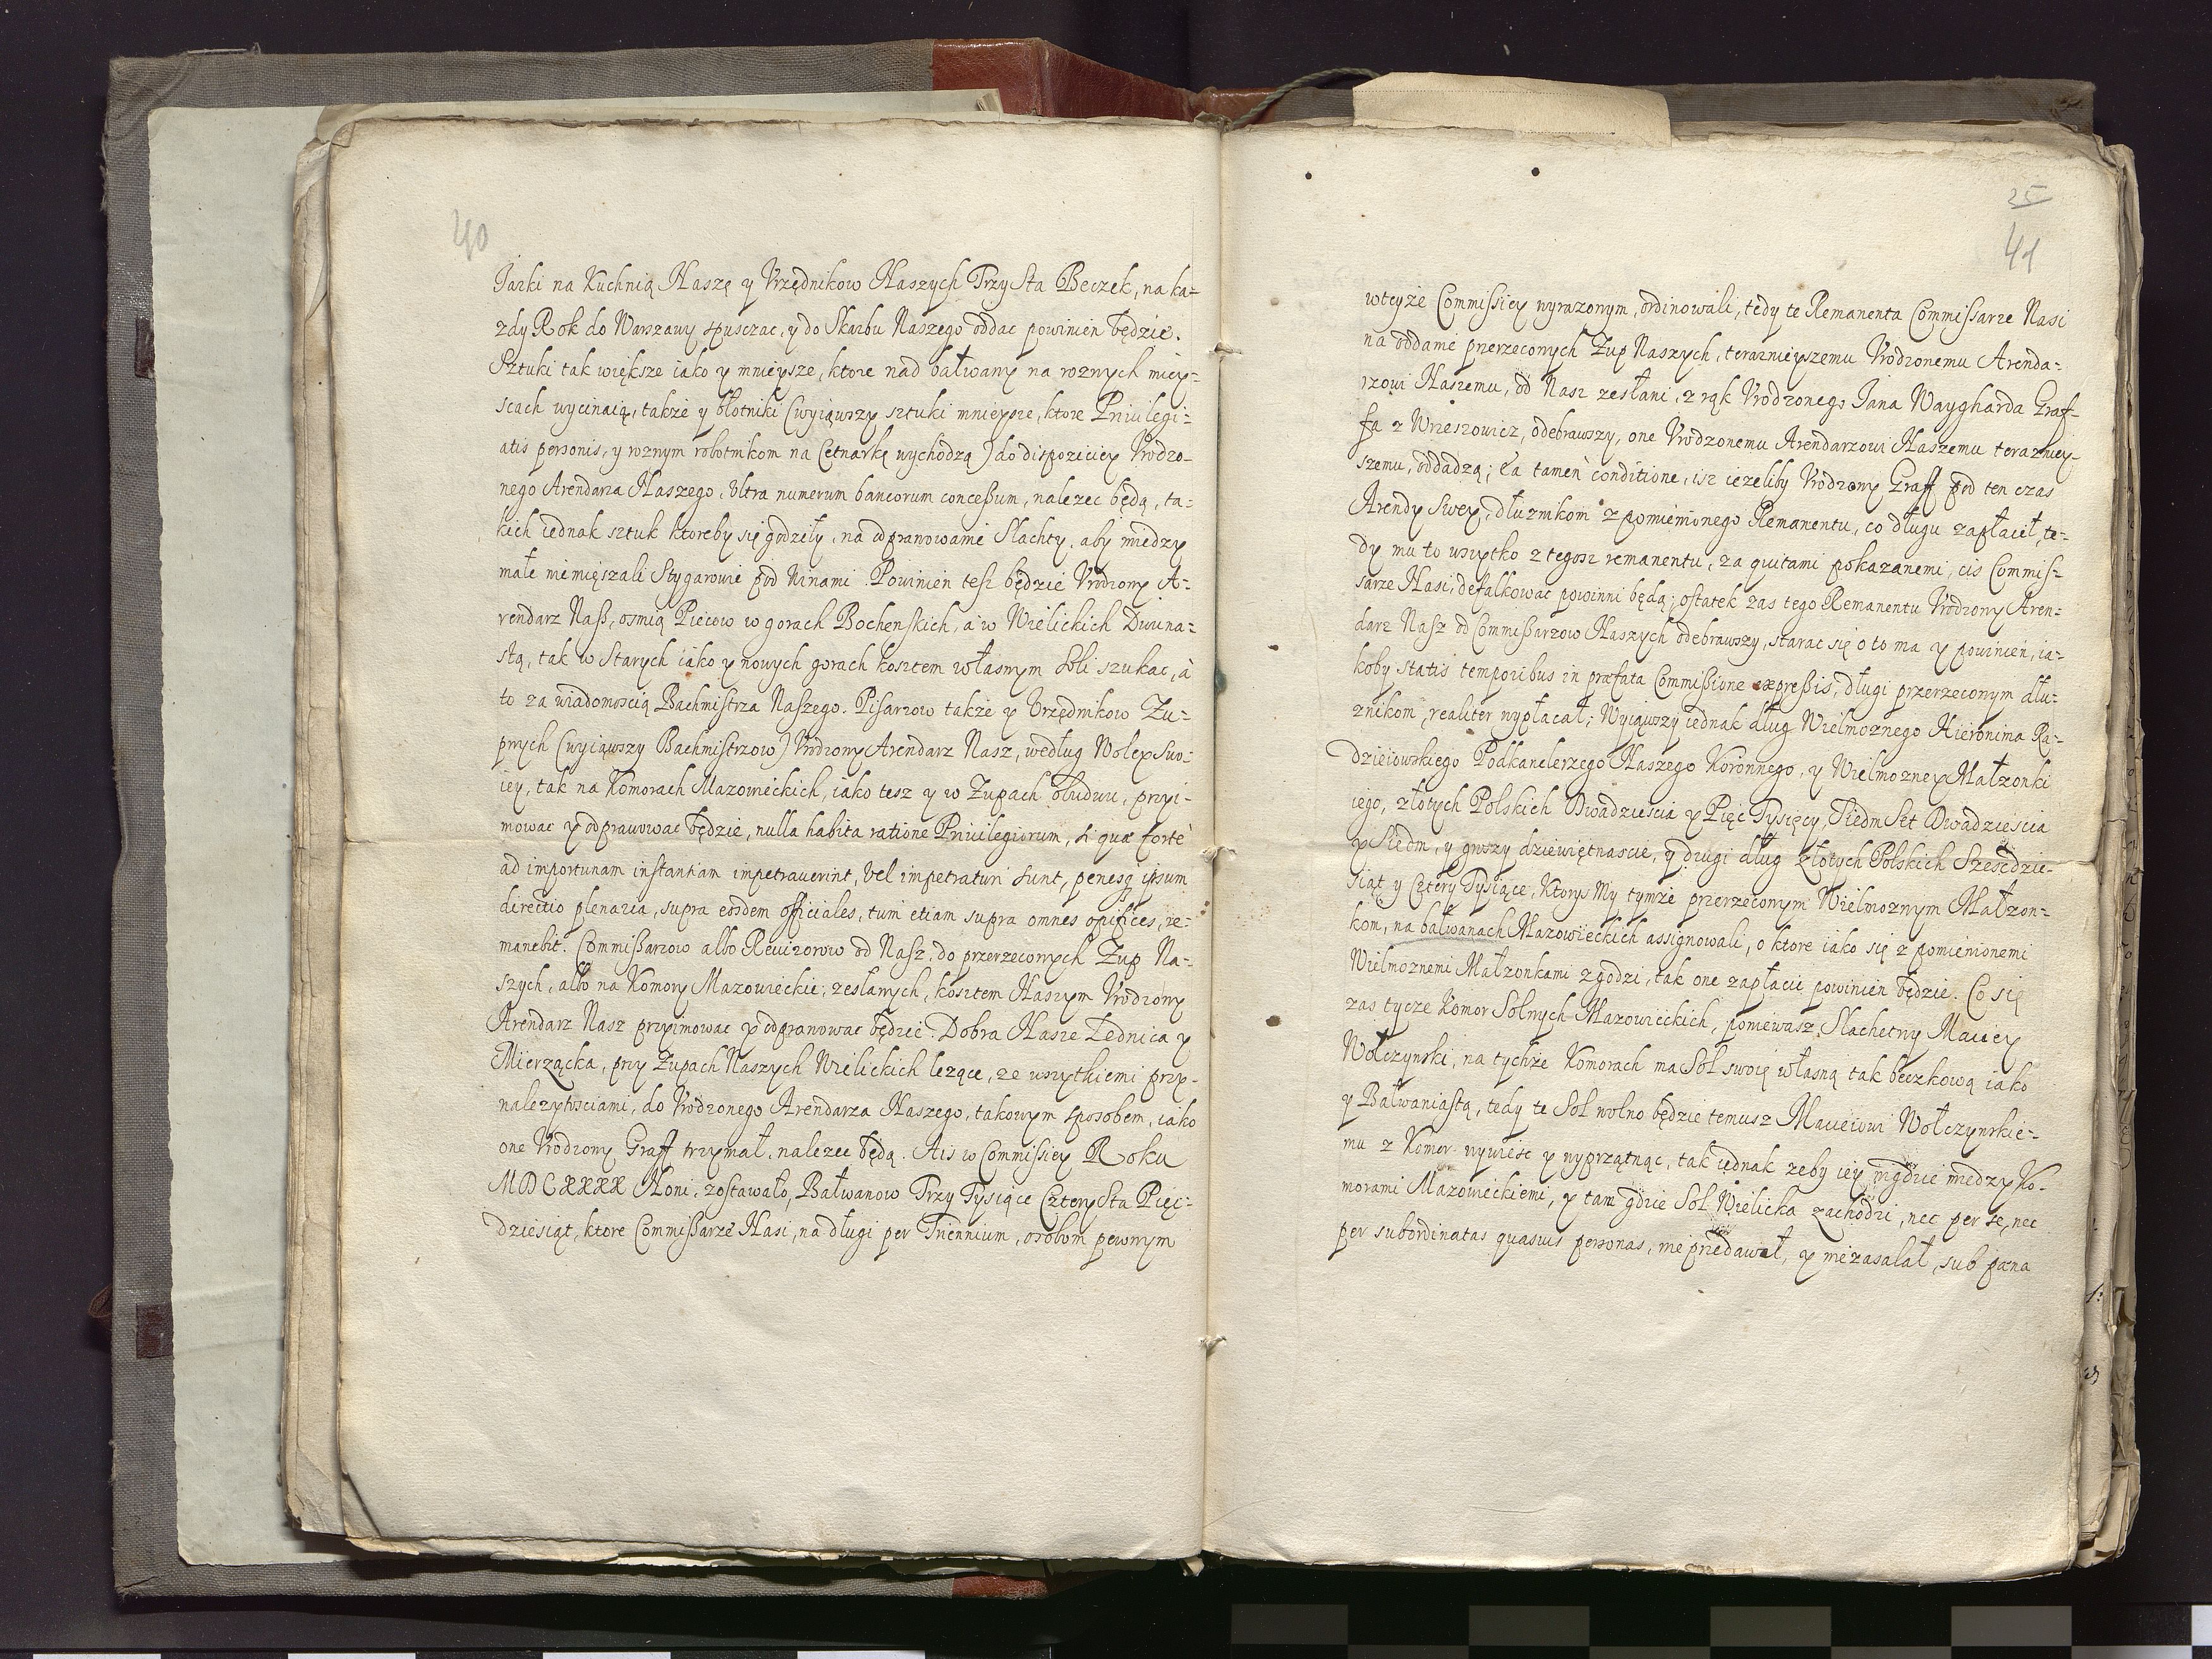 40
Jarki na Kuchnią Naszę y Vrzędnikow Naszych Trzy Sta Beczek, na ka-
zdy Rok do Warszawy spusczac, y do Skarbu Naszego oddac powinien będzie.
Sztuki tak większe iako y mnieysze, ktore nad bałwany na roznych miey-
scach wycinaią, takze y błotniki (wyiąwszy sztuki mnieysze, ktore Priuilegi-
atis personis, y roznym robotnikom na Cetnarkę wychodzą) do dispoziciey Vrodzo-
nego Arendarza Naszego, Vltra numerum bancorum concessum, nalezec będą, ta-
kich iednak sztuk ktoreby się godziły, na odprawowanie Slachty, aby miedzy
małe niemięszali Stygarowie pod Winami. Powinien tesz będzie Vrodzony A-
rendarz Nasz, osmią Piecow w gorach Bochenskich, a w Wielickich Dwuna-
stą, tak w Starych iako y nowych gorach kosztem własnym Soli szukac, à
to za wiadomoscią Bachmistrza Naszego. Pisarzow takze y Vrzędnikow Zu-
pnych (wyiąwszy Bachmistrzow) Vrodzony Arendarz Nasz, według Woley Swo-
iey, tak na Komorach Mazowieckich, iako tesz y w Zupach oludwu, przyi-
mowac y odprawowac będzie, nulla habita ratione Priuilegiorum, si quæ fortè
ad importunam instantiam impetrauerint, Vel impetraturi sunt, penesq ipsum
directio plenaria, supra eosdem officiales, tum etiam supra omnes opifices, re-
manebit. Commissarzow albo Reuizorow od Nasz, do przerzeconych Zup Na-
szych, albo na Komory Mazowieckie, zeslanych, kosztem Naszym Vrodzony
Arendarz Nasz przyimowac y odprawowac będzie. Dobra Nasze Lednica y
Mierzącka, przy Zupach Naszych Wielickich lezące, ze wszytkiemi przy-
nalezytosciami, do Vrodzonego Arendarza Naszego, takowym sposobem, iako
one Vrodzony Graff trzymał, nalezec będą. A is w Commissiey Roku
MDCXXXX Noni, zostawało, Bałwanow Trzy Tysiące Cztery Sta Pięc-
dziesiąt, ktore Commissarze Nasi, na długi per Triennium, osobom pewnym
25
41
wteyze Commissiey wyrazonym, ordinowali, tedy te Remanenta Commissarze Nasi
na oddanie przerzeconych Zup Naszych, teraznieyszemu Vrodzonemu Arenda-
rzowi Naszemu, od Nasz zesłani, z rąk Vrodzonego Jana Waygharda Graf-
fa z Wrzesowicz, odebrawszy, one Vrodzonemu Arendarzowi Naszemu terazniey-
szemu, oddadzą; Ea tamen conditione, isz iezeliby Vrodzony Graff pod ten czas
Arendy Swey, dłuznikom z pomienionego Remanentu, co długu zapłacił, te-
dy mu to wszytko z tegosz remanentu, za quitami pokazanemi, cis Commis-
sarze Nasi, defalkowac powinni będą; ostatek zas tego Remanentu Vrodzony Aren-
darz Nasz od Commissarzow Naszych odebrawszy, starac się o to ma y powinien, ia-
koby statis temporibus in præfata Commissione expressis, długi przerzeconym dłu-
znikom, realiter wypłacał; Wyiąwszy iednak dług Wielmoznego Hieronima Ra-
dzieiowskiego Podkanclerzego Naszego Koronnego, y Wielmozney Małzonki
iego, złotych Polskich Dwadziescia y Pięc Tysięcy, Siedm Set Dwadziescia
y Siedm, y groszy dziewiętnascie, y drugi dług złotych Polskich Szescdzie-
siąt y Cztery Tysiące, ktorys My tymze przerzeconym Wielmoznym Małzon-
kom, na bałwanach Mazowieckich assignowali, o ktore iako się z pomienionemi
Wielmoznemi Małzonkami zgodzi, tak one zapłacic powinien będzie. Co się
zas tycze Komor Solnych Mazowieckich, poniewasz Slachetny Maciey
Wołczynski, na tychze Komorach ma Sol swoię własną tak beczkową iako
y Bałwaniastą, tedy te Sol wolno będzie temusz Macieiowi Wołczynskie-
mu z Komor wywiesc y wyprzątnąc, tak iednak zeby iey nigdzie miedzy Ko-
morami Mazowieckiemi, y tam gdzie Sol Wielicka zachodzi, nec per se, nec
per subordinatas quasuis personas, nie przedawał, y nie zasalał, sub pæna